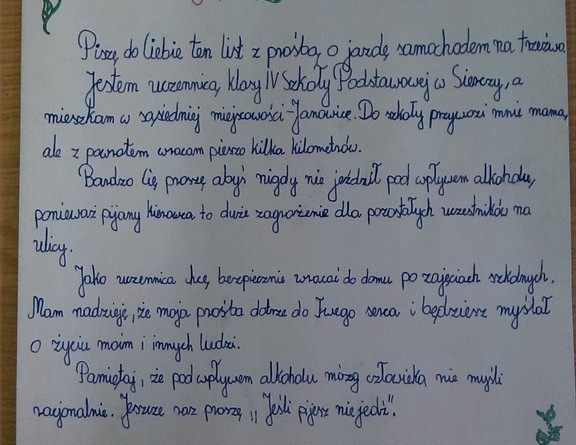 Piszę do Ciebie ten list z prośbą o jazdę samochodem na trzeźwo.
Jestem uczennicą klasy IV Szkoły Podstawowej w Sierczy, a
mieszkam w sąsiedniej miejscowości - Janowice. Do szkoły przywozi mnie mama,
ale z powrotem wracam pieszo kilka kilometrów.
Bardzo Cię proszę, abyś nigdy nie jeździł pod wpływem alkoholu,
ponieważ pijany kierowca to duże zagrożenie dla pozostałych uczestników na
ulicy.
Jako uczennica chcę bezpiecznie wracać do domu po zajęciach szkolnych.
Mam nadzieję, że moja prośba dotrze do Twego serca i będziesz myślał
o życiu moim i innych ludzi.
Pamiętaj, że pod wpływem alkoholu mózg człowieka nie myśli
racjonalnie. Jeszcze raz proszę „Jeśli pijesz nie jedź".